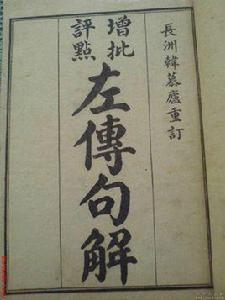 長洲韓慕廬重訂
增批
評點
左傳句解